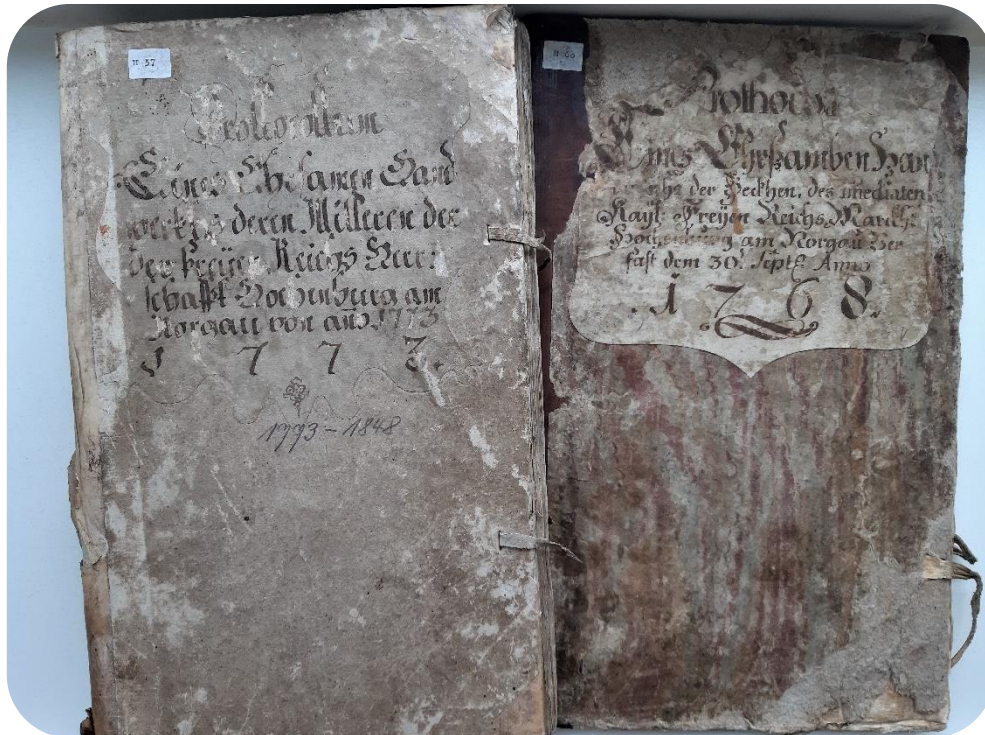 II 37
Prothocollum
Eines Ehrsamen Hand
werkhs deren Milleren der
der freyen Reichs Herr:
schafft Hochenburg am
Norgau von año 1773
1 7 7 3.
1773-1848
II 60
Prothoco
Eines Ehrsamben Han
der Beckhen, des imediaten
Kayl: Freyen Reichs Marckts
Hochenburg am Norgau Ver
fast dem 30. Septb: Anno
. 1 7 6 8.